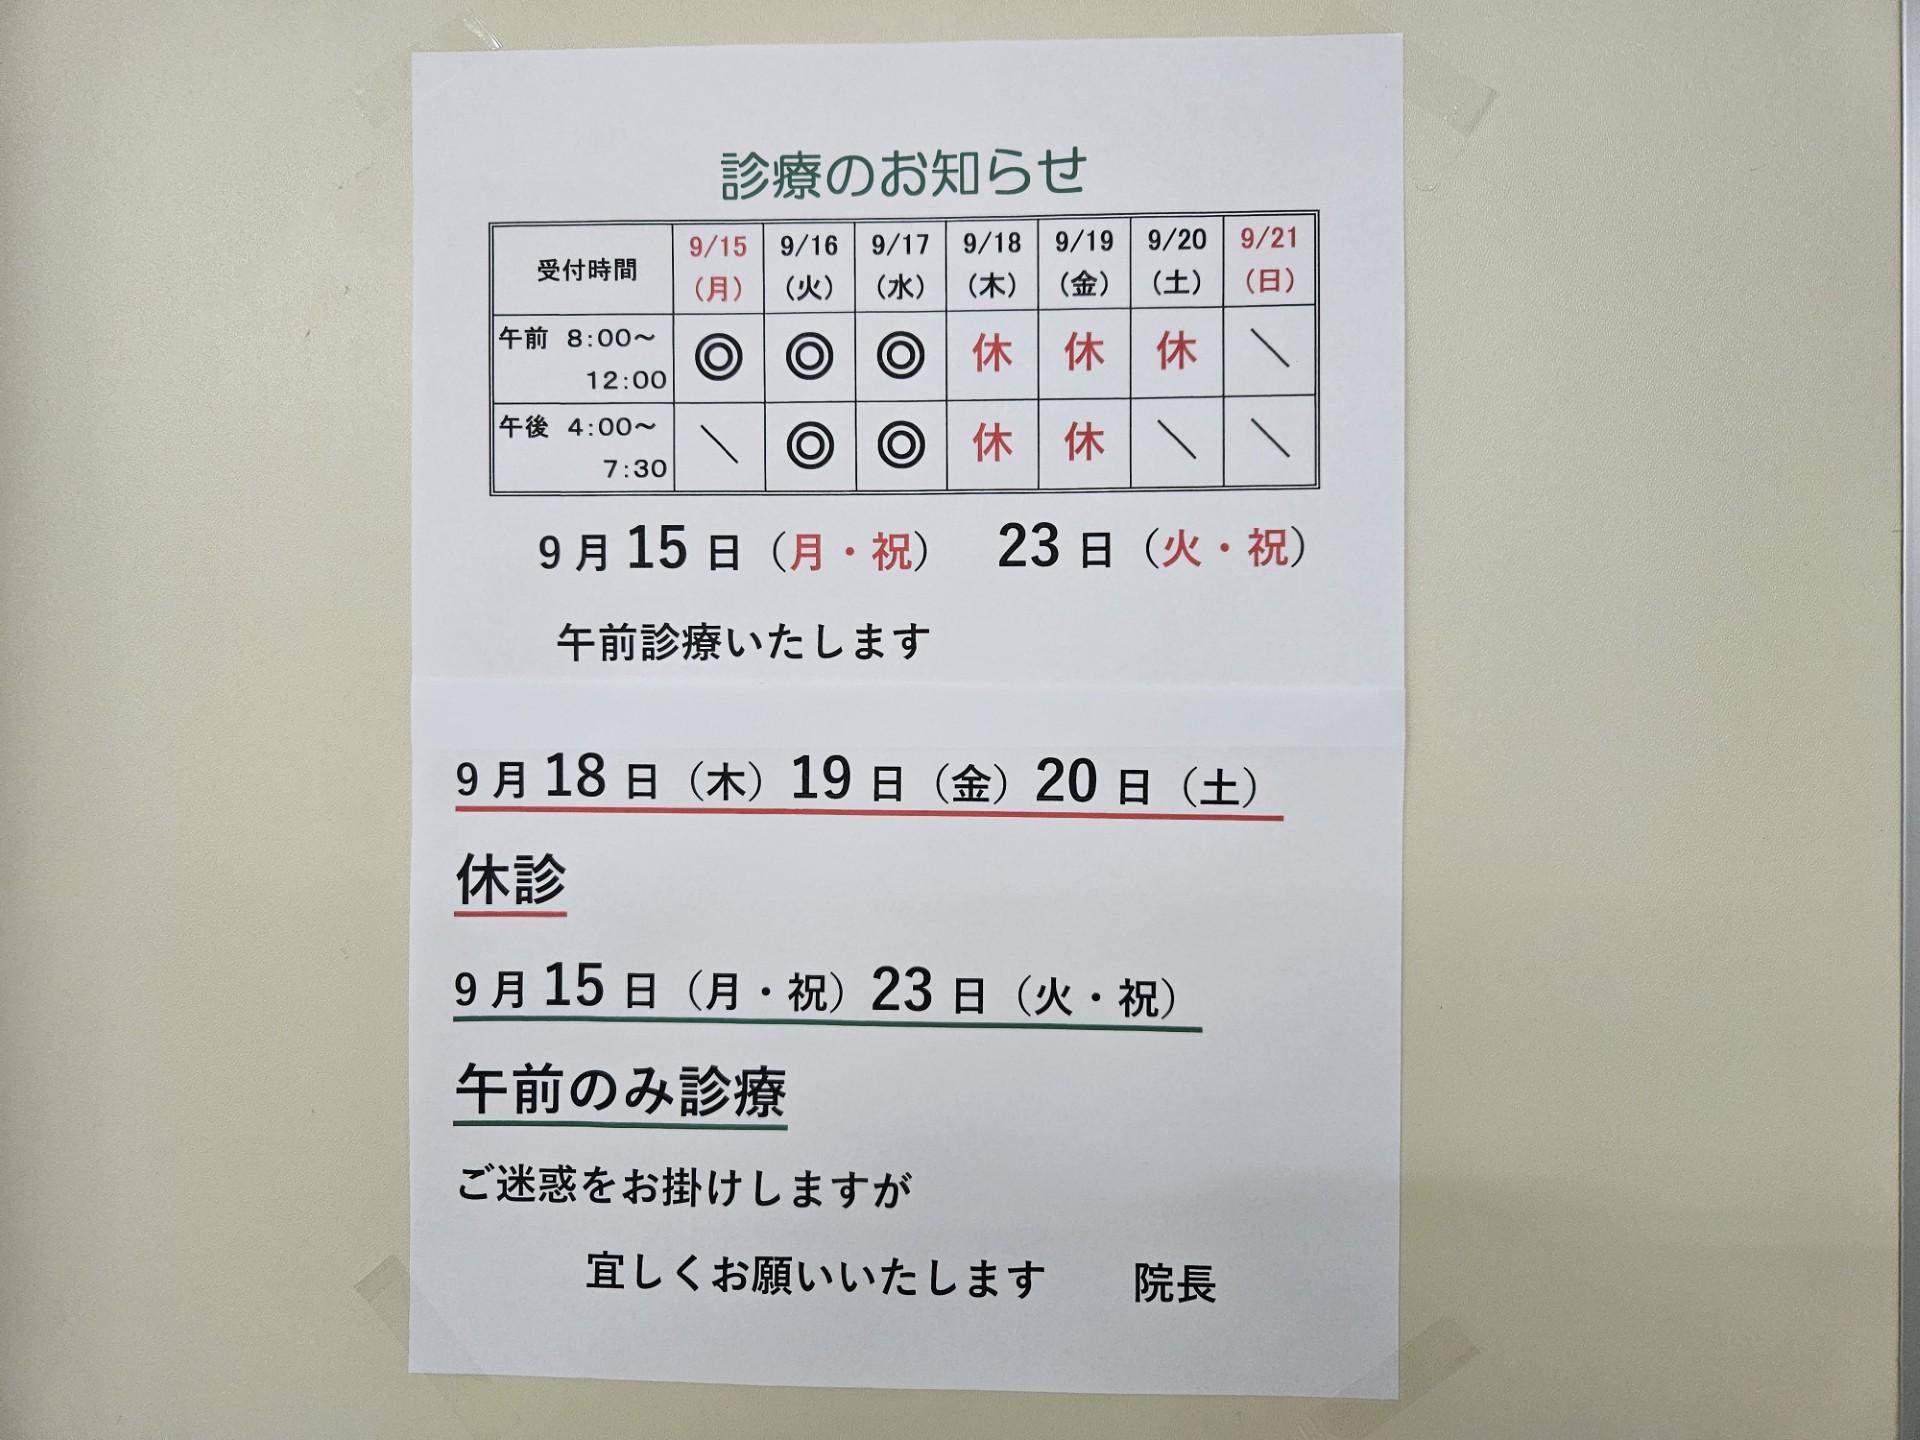 診療のお知らせ
受付時間 9/15 9/16 9/17 9/18 9/19 9/20 9/21
(月) (火) (水) (木) (金) (土) (日)
午前 8:00～ ◎ ◎ ◎ 休 休 休 ＼
12:00
午後 4:00～ ＼ ◎ ◎ 休 休 ＼ ＼
7:30
9月15日（月・祝） 23日（火・祝）
午前診療いたします
9月18日（木）19日（金）20日（土）
休診
9月15日（月・祝）23日（火・祝）
午前のみ診療
ご迷惑をお掛けしますが
宜しくお願いいたします 院長